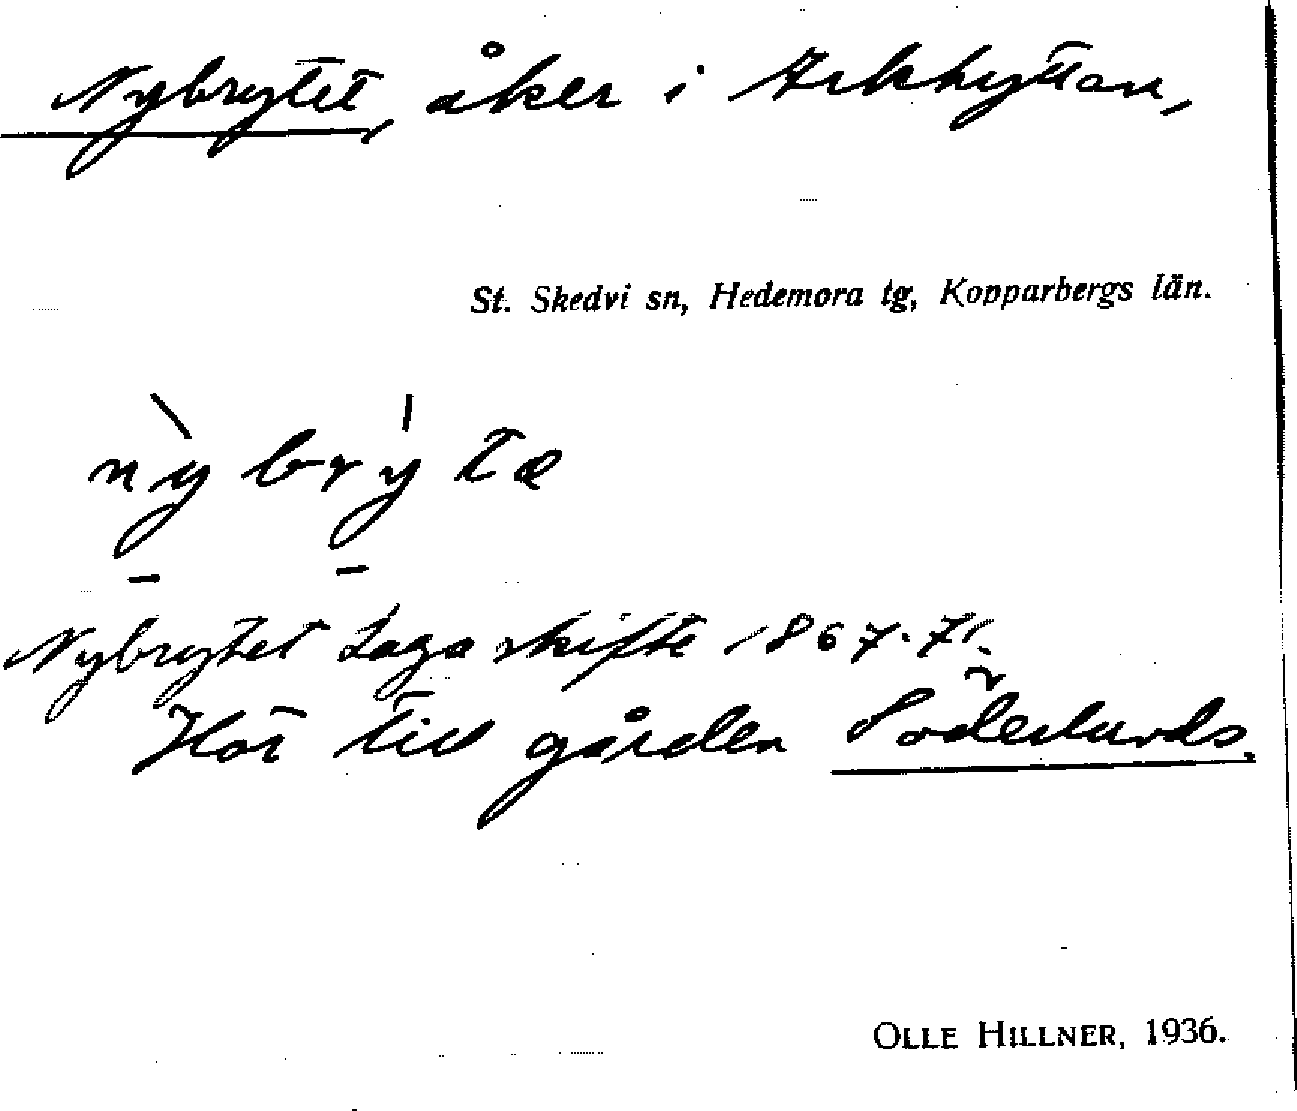 Nybrytet, åker i Arkhyttan,
St. Skedvi sn, Hedemora tg, Kopparbergs län.
nỳbrýtæ
Nybrytet Laga skifte 1867-71.
Hör till gården Söderlunds.
OLLE HILLNER, 1936.